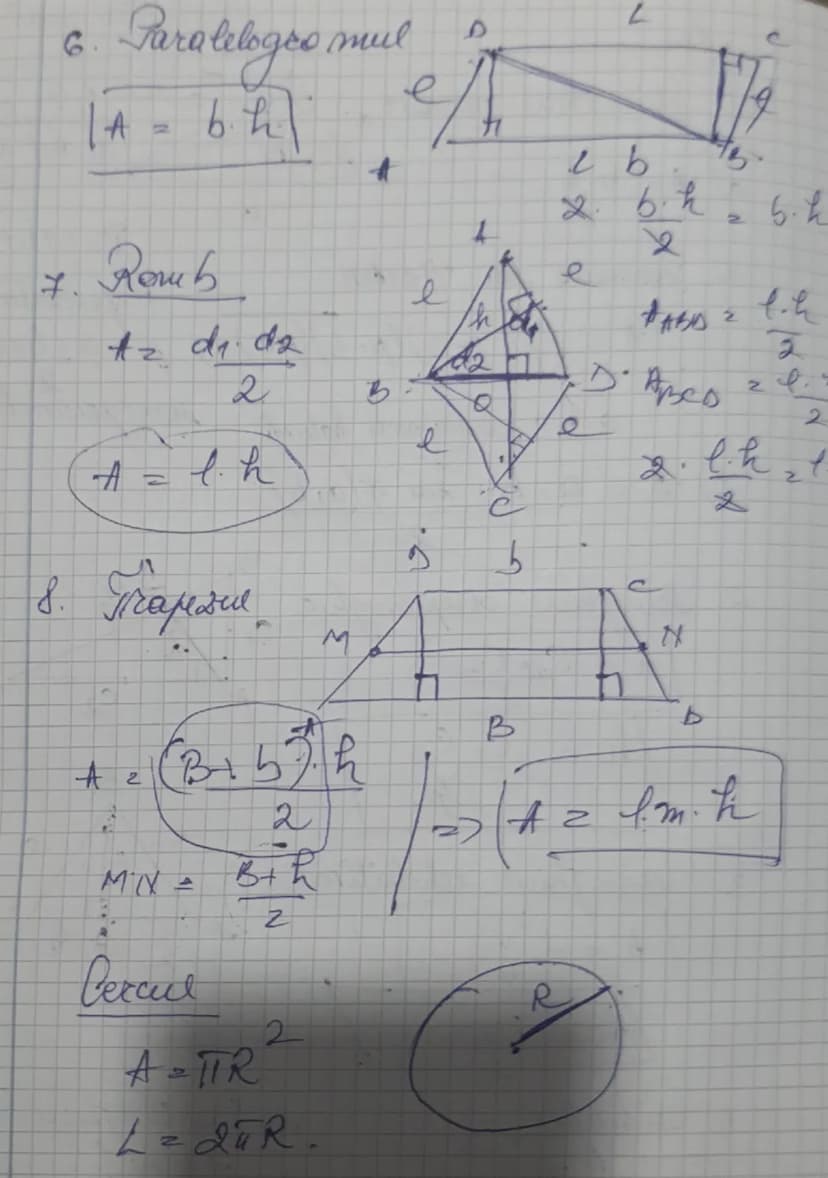 6. Paralelogramul
A = b·h
D L C
A l b B
2· b·h/2 = b·h
7. Romb
A = d1·d2/2
A = l·h
A
l e
h d1
B d2 D
l e
C
A_ABD = l·h/2
A_BCD = l·
2
2· l·h/2 = l
8. Trapezul
D b C
M N
A B B
A = (B+b)·h/2
MN = B+h/2
=> A = l.m.·h
Cercul
R
A = πR²
L = 2πR.